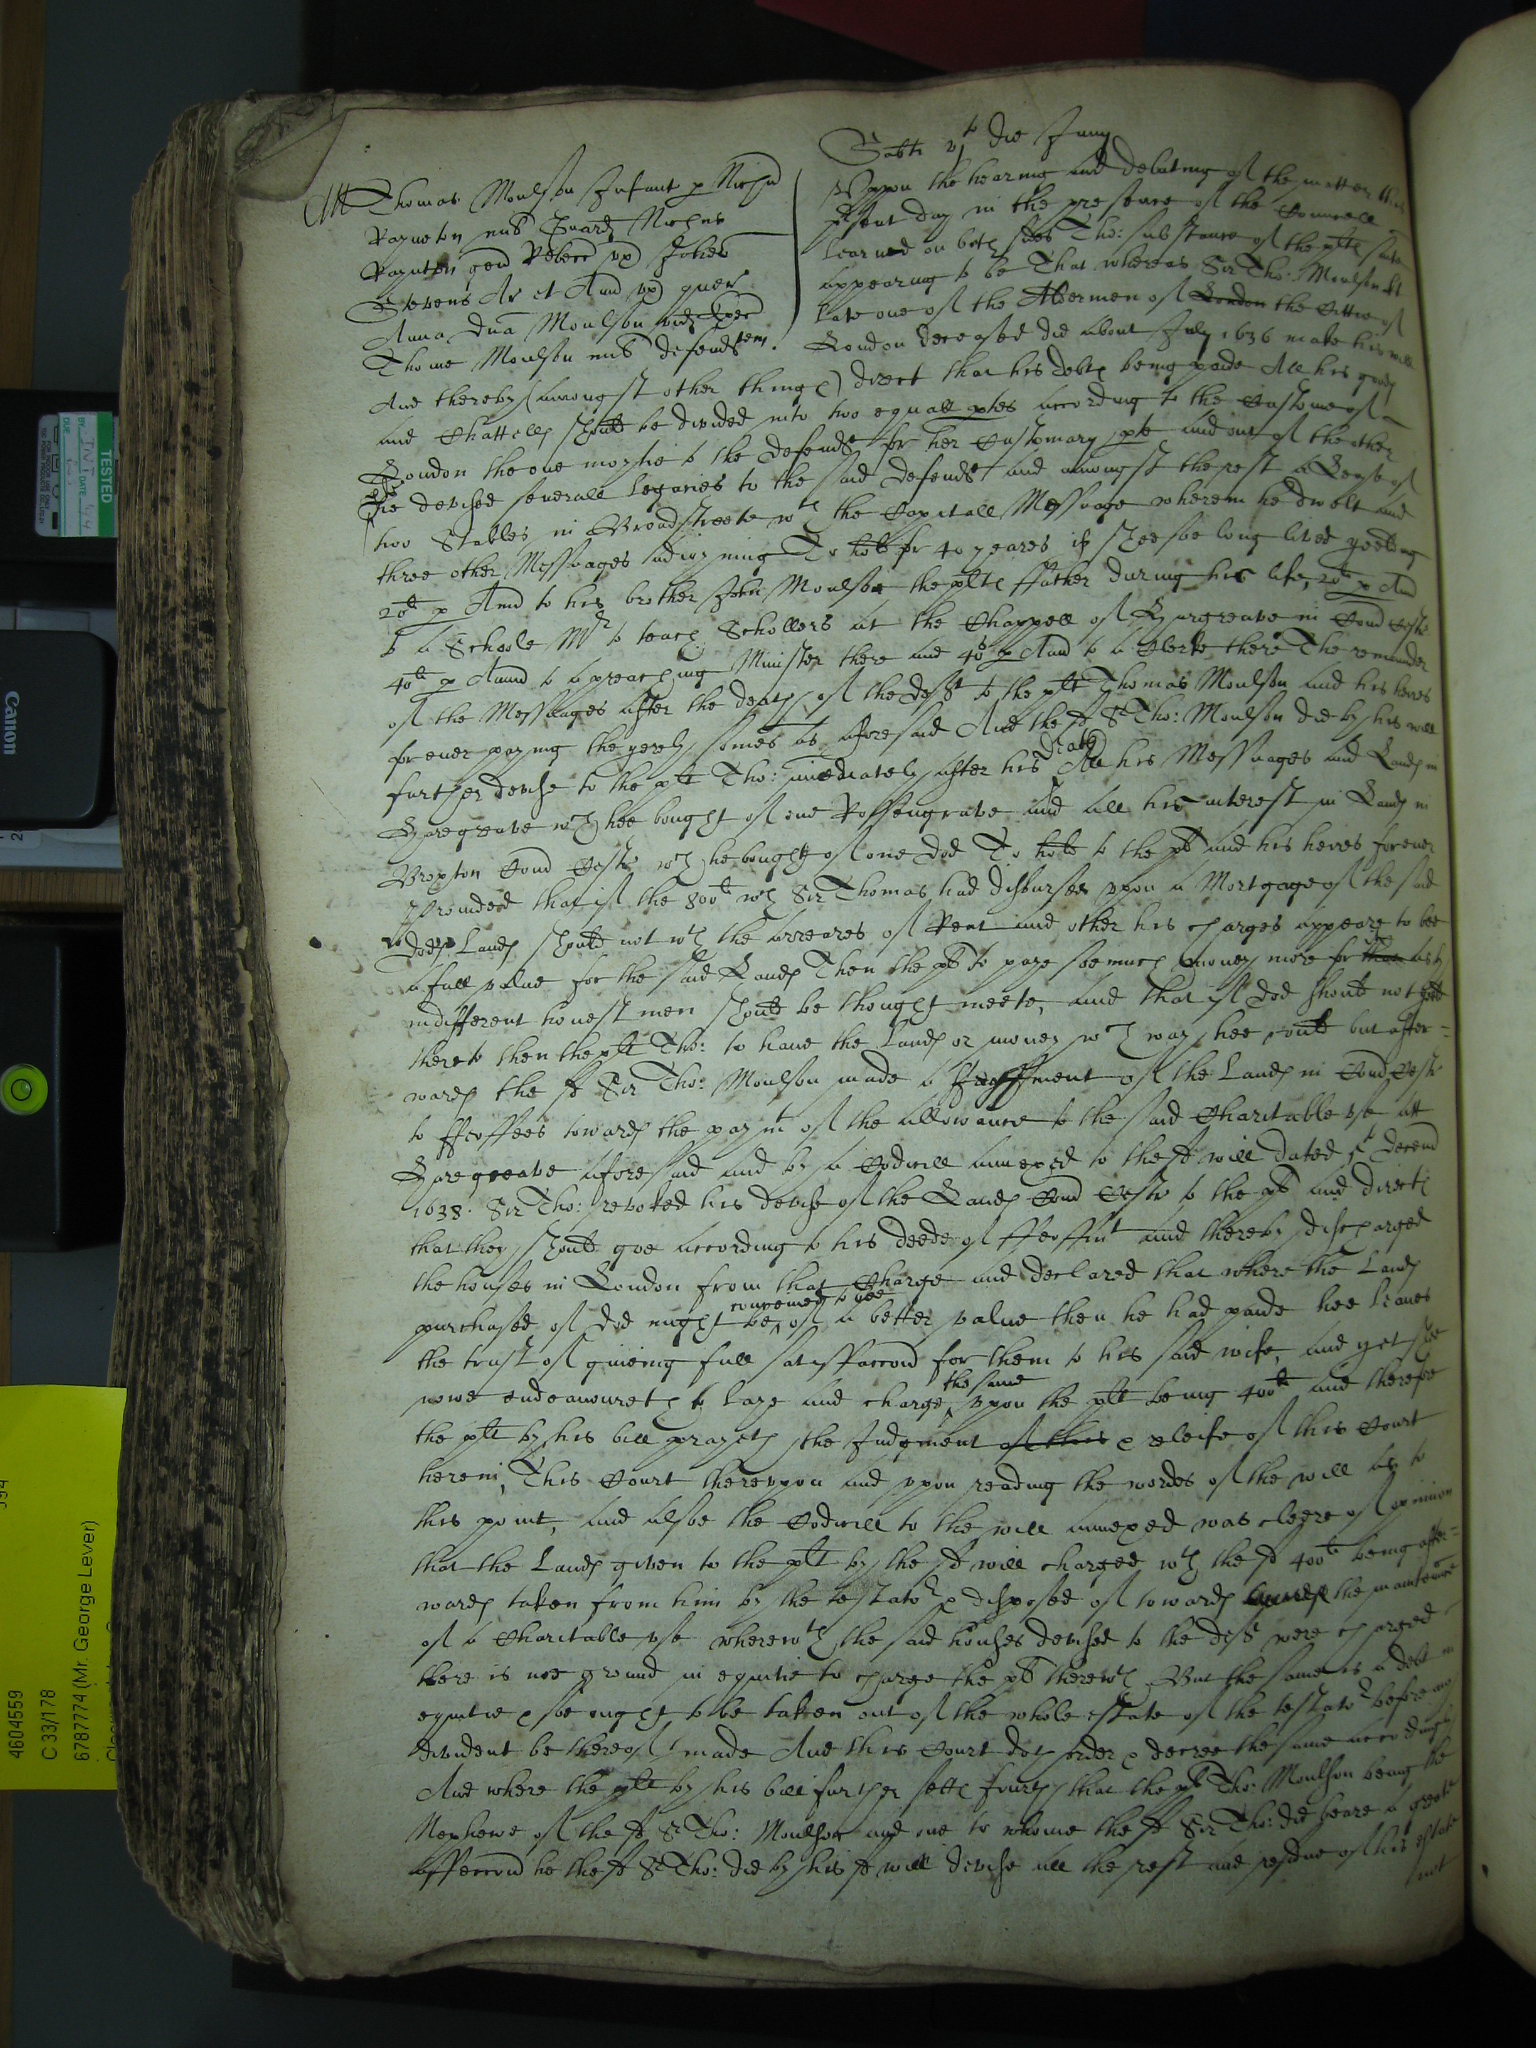 Sabti vj<sup>to</sup> die Junij
Thomas Moulson Infant p Nichū
Raynton mil Guard Nichus
Raynton gen Rebecc vx Johes
Stevens Ar et Ann vx quer
Anna Dna Moulson vid
Thome Moulson mil defendtem.
Vppon the hearing and debating of the matter this
psent day in the presence of the Councell
learned on both sides The substance of the plts suite
appearing to be That whereas Sir Tho: Moulson kt
late one of the Aldermen of London the Cittie of
London deceased did about July 1636 make his will
And thereby (amongst other things) direct that his debts being paide All his goods
and Chattells should be divided into two equall ptes according to the Custome of
London the one moytie to the Defendt for her Customary pte and out of the other
he devised severall legacies to the said Defendt and amongst the rest a Lease of
two Stables in Broadstreete wth the Capitall Messuage wherein he dwelt and
three other Messuages adioyning To hold for 40 yeares if shee soe long lived yeelding
20li p Ann to his brother John Moulson the plts ffather during his life, 20li p Ann
to a Schoole Mr to teach Schollers at the Chappell of Hargreave in Com Cestr
40li p Annu to a preaching Minister there and 40s p Ann to a Clerke there The remainder
of the Messuages after the death of the Deft to the plt Thomas Moulson and his heires
for ever paying the yerely somes as aforesaid And the sd Sr Tho: Moulson did by his will
further devise to the plt Tho: imediately after his death All his Messuages and Lands in
Hargreave wch hee bought of one Rossengrave and all his interest in Lands in
Broxton Com Cestr wch he bought of one Dod To hold to the plt and his heires for ever
Provided that if the 800li wch Sir Thomas had disbursed vpon a Mortgage of the said
Dods Lands should not wth the arreares of Rent and other his charges appeare to bee
a full value for the said Lands Then the plt to paye soe much money more for them as by
indifferent honest men should be thought meete, and that if Dod should not yeild
thereto then the plt Tho: to have the Lands or money wch way hee could but after=
wards the sd Sir Tho: Moulson made a ffeoffment of the Lands in Com Cestr
to ffeoffees towards the paymt of the allowance to the said Charitable vse att
Hargreave aforesaid and by a Codicill annexed to the sd will dated Decem
1638. Sir Tho: revoked his devise of the Lands Com Cestr to the plt and directs
that they should goe according to his deede of ffeoffmt and thereby discharged
the houses in London from that Charge and declared that where the Lands
purchased of Dod might be conceived to bee of a better value then he had paide hee leaves
the trust of giveing full satisfaccon for them to his said wife, and yet shee
nowe endeavoureth to laye and charge the same vpon the plt being 400li and therefore
the plt by his bill prayeth the Judgment of this & releife of this Court
herein, This Court therevpon and vpon reading the wordes of the will as to
this point, and alsoe the Codicill to the will annexed was cleere of opinion
that the Lands given to the plt by the sd will charged wth the sd 400li being after=
wards taken from him by the testator & disposed of towards the maintenance
of a Charitable vse wherewth the said houses devised to the deft were charged
there is noe ground in equitie to charge the plt therewth But the same is a debt in
equitie & soe ought to be taken out of the whole estate of the testator before any
divident be thereof made And this Court doth order & decree the same accordingly
And where the plt by his bill further setts fourth that the plt Tho: Moulson being the
Nephewe of the sd Sr Tho: Moulson and one to whome the sd Sir Tho: did beare a greate
affeccon he the sd Sr Tho: did by his sd will devise all the rest and residue of his estate
not
Canon
TESTED
BY INT
DATE
DUE
4604559
C 33/178
6787774 (Mr. George Lever)